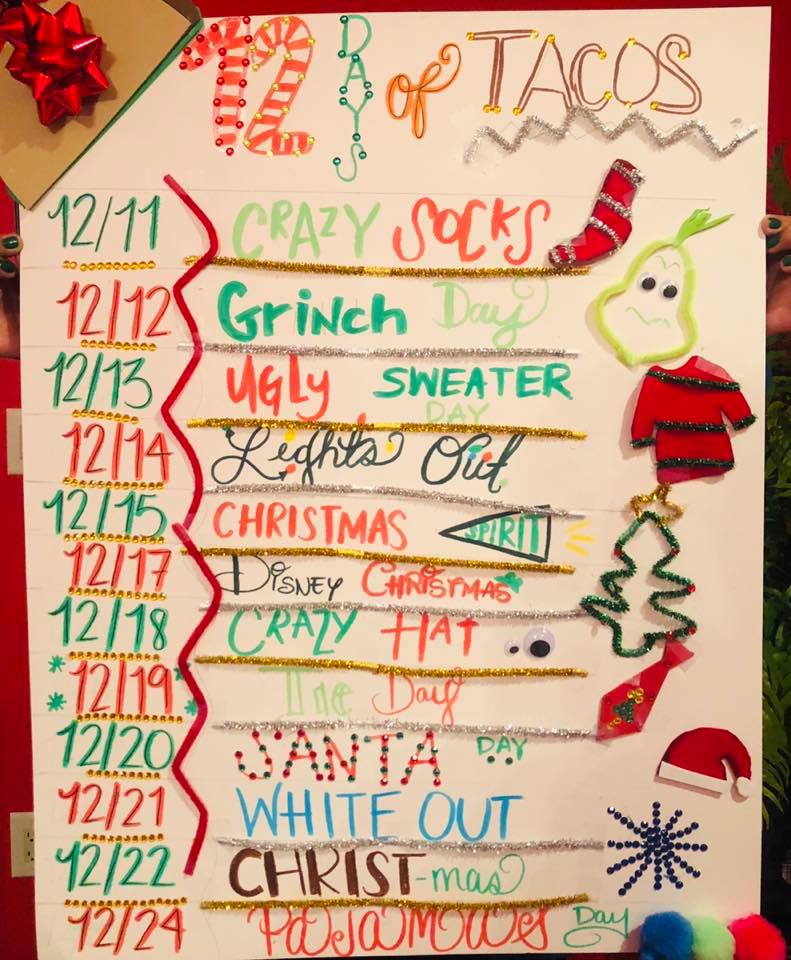 12 DAYS of TACOS
12/11 CRAZY SOCKS
12/12 Grinch Day
12/13 UGLY SWEATER DAY
12/14 Lights Out
12/15 CHRISTMAS SPIRIT
12/17 DISNEY CHRISTMAS
12/18 CRAZY HAT
12/19 Tie Day
12/20 SANTA DAY
12/21 WHITE OUT
12/22 CHRIST-mas
12/24 Day